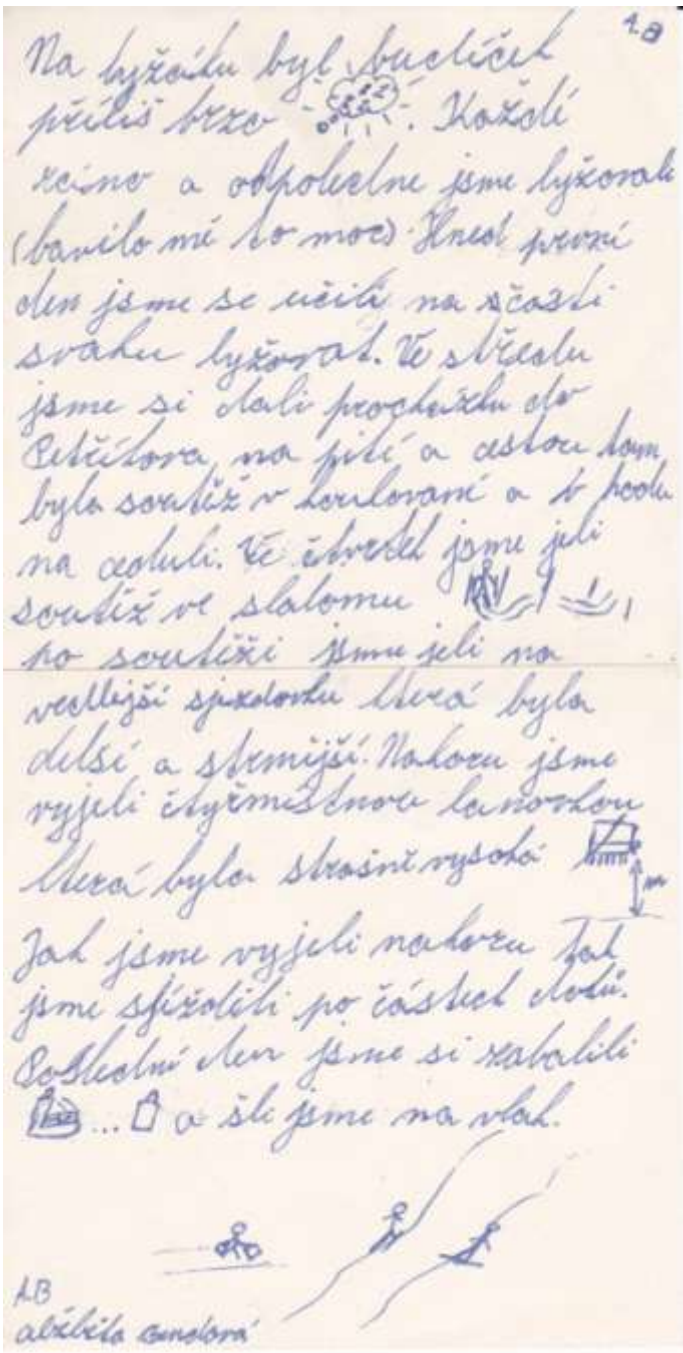 1.B
Na lyžáku byl budíček
příliš brzo. Každí
ráno a odpoledne jsme lyžovali
(bavilo mě to moc). Hned první
den jsme se učili na sčásti
svahu lyžovat. Ve středu
jsme si dali procházku do
Petříkova na pití a cestou tam
byla soutěž v koulovaní a v hodu
na ceduli. Ve čtvrtek jsme jeli
soutěž ve slalomu
po soutěži jsme jeli na
vedlejší sjezdovku která byla
delší a strmější. Nahoru jsme
vyjeli čtyřmístnou lanovkou
která byla strašně vysoká
m
Jak jsme vyjeli nahoru tak
jsme sjížděli po částech dolů.
Poslední den jsme si zabalili
... a šli jsme na vlak.
1.B
alžběta